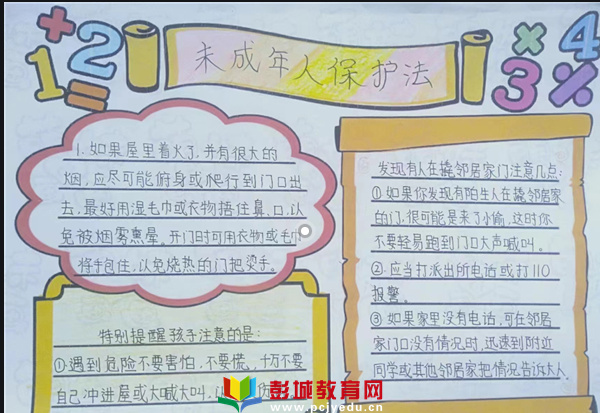 未成年人保护法
1.如果屋里着火了,并有很大的
烟,应尽可能俯身或爬行到门口出
去,最好用湿毛巾或衣物捂住鼻、口,以
免被烟雾熏晕。开门时可用衣物或毛
将手包住,以免烧热的门把烫手。
特别提醒孩子注意的是:
①遇到危险不要害怕,不要慌,千万不要
自己冲进屋或大喊大叫,
发现有人在撬邻居家门注意几点:
①如果你发现有陌生人在撬邻居家
的门,很可能是来了小偷,这时你
不要轻易跑到门口大声喊叫。
②.应当打派出所电话或打110
报警。
③如果家里没有电话,可在邻居
家门口没有情况时,迅速到附近
同学或其他邻居家把情况告诉大人。
彭城教育网
www.pcjyedu.cn
1 2 + =
× 4 3 %